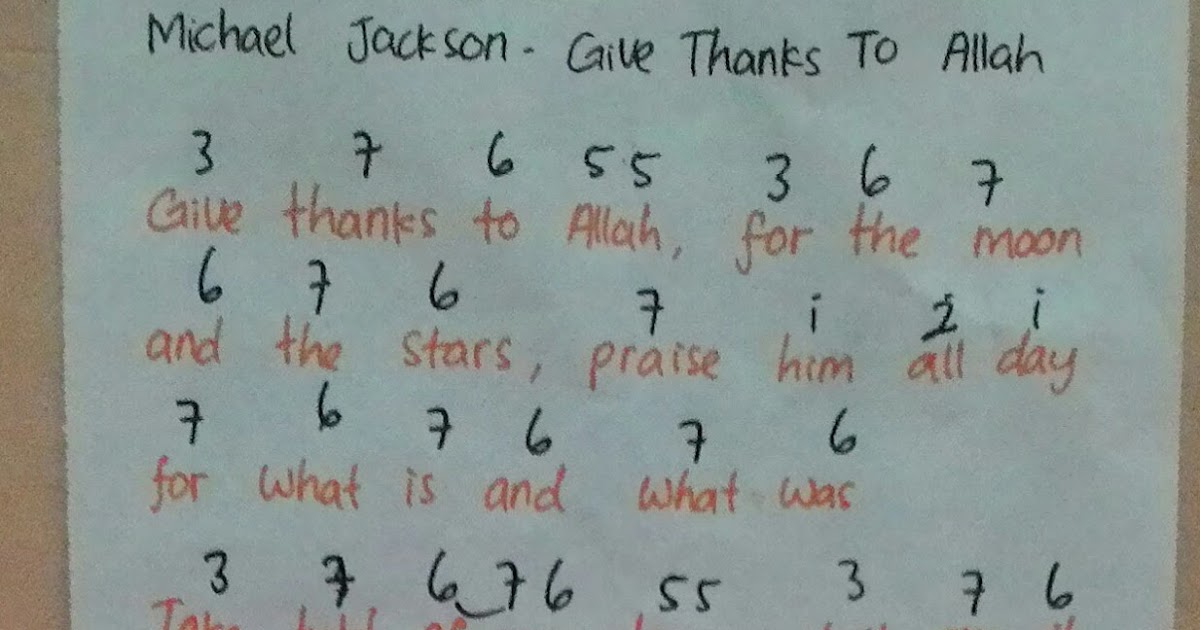 Michael Jackson - Give Thanks To Allah
3 7 6 5 5 3 6 7
Give thanks to Allah, for the moon
6 7 6 7 i 2 i
and the stars, praise him all day
7 6 7 6 7 6
for what is and what was
3 7 6 7 6 5 5 3 7 6